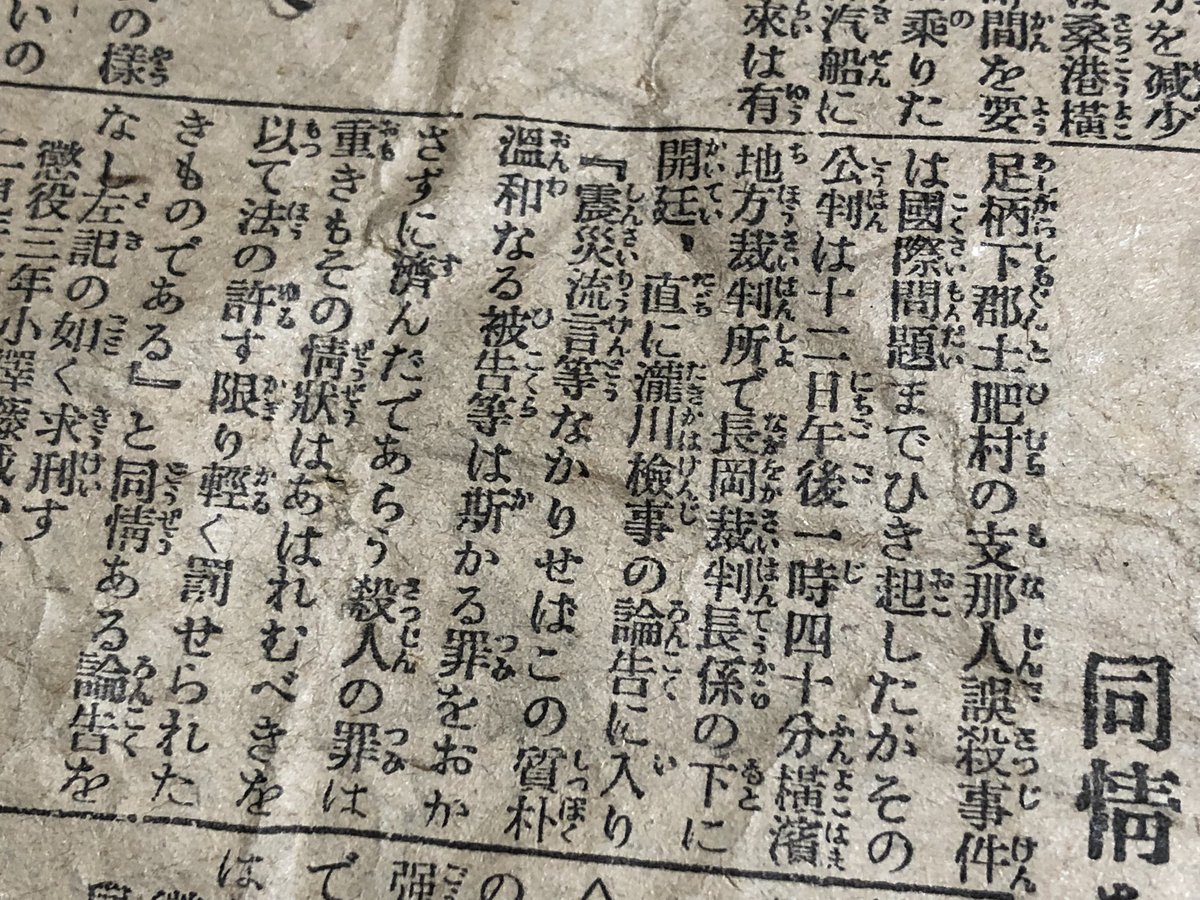 力を減少
は桑港横
間を要
乗りた
汽船に
來は有
の様
いの
同情
足柄下郡土肥村の支那人誤殺事件
は國際問題までひき起したがその
公判は十二日午後一時四十分横濱
地方裁判所で長岡裁判長係の下に
開廷、直に瀧川檢事の論告に入り
『震災流言等なかりせばこの質朴
溫和なる被告等は斯かる罪をおか
さずに濟んだであらう殺人の罪は
重きもその情狀はあはれむべきを
以て法の許す限り輕く罰せられた
きものである』と同情ある論告を
なし左記の如く求刑す
懲役三年小澤藤
の
强
で
は